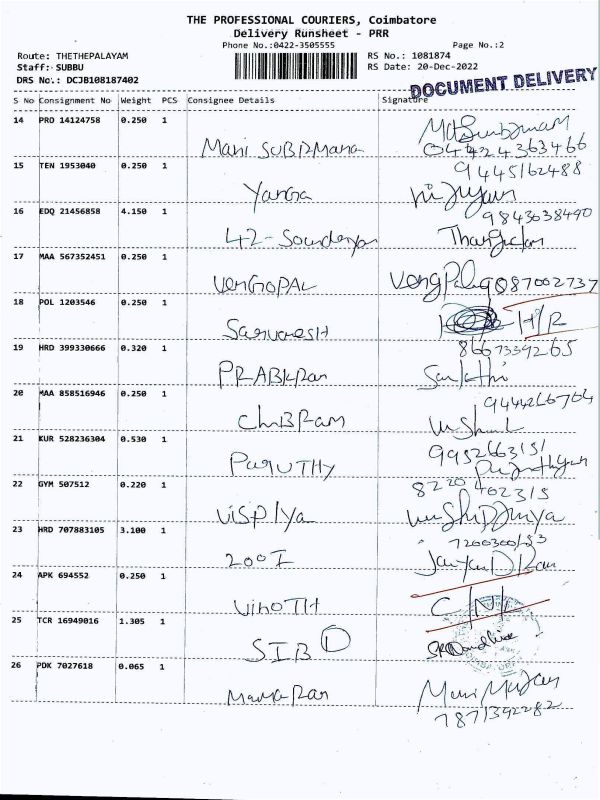 THE PROFESSIONAL COURIERS, Coimbatore
Delivery Runsheet - PRR
Phone No.:0422-3505555 Page No.:2
Route: THETHEPALAYAM RS No.: 1081874
Staff: SUBBU RS Date: 20-Dec-2022
DRS No.: DCJB108187402
DOCUMENT DELIVERY
S No Consignment No Weight PCS Consignee Details Signature
14 PRO 14124758 0.250 1
Mani SUBRMana
04424363466
15 TEN 1953040 0.250 1 9445162488
Yanga
16 EDQ 21456858 4.150 1 9843638490
42-Soundarya
17 MAA 567352451 0.250 1
VENGOPAL 9087002737
18 POL 1203546 0.250 1
Sarvaresh H/R
19 HRD 399330666 0.320 1 8667339265
PRABKRan
20 MAA 858516946 0.250 1 9444266764
ChiBRam
21 KUR 528236304 0.530 1 9952663151
ParuTHy
22 GYM 507512 0.220 1 8220402315
ViSPIYa
23 HRD 707883105 3.100 1 7200300153
200I
24 APK 694552 0.250 1
VinoTH C/N/L
25 TCR 16949016 1.305 1
SIB D
26 PDK 7027618 0.065 1
ManaRan
7871392282